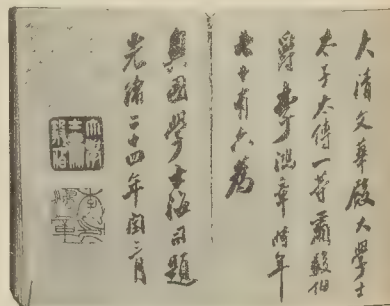 大清文華殿大學士
太子太傅一等肅毅伯
爵李鴻章時年
七十有六為
奧國學士海司題
光緒二十四年閏三月